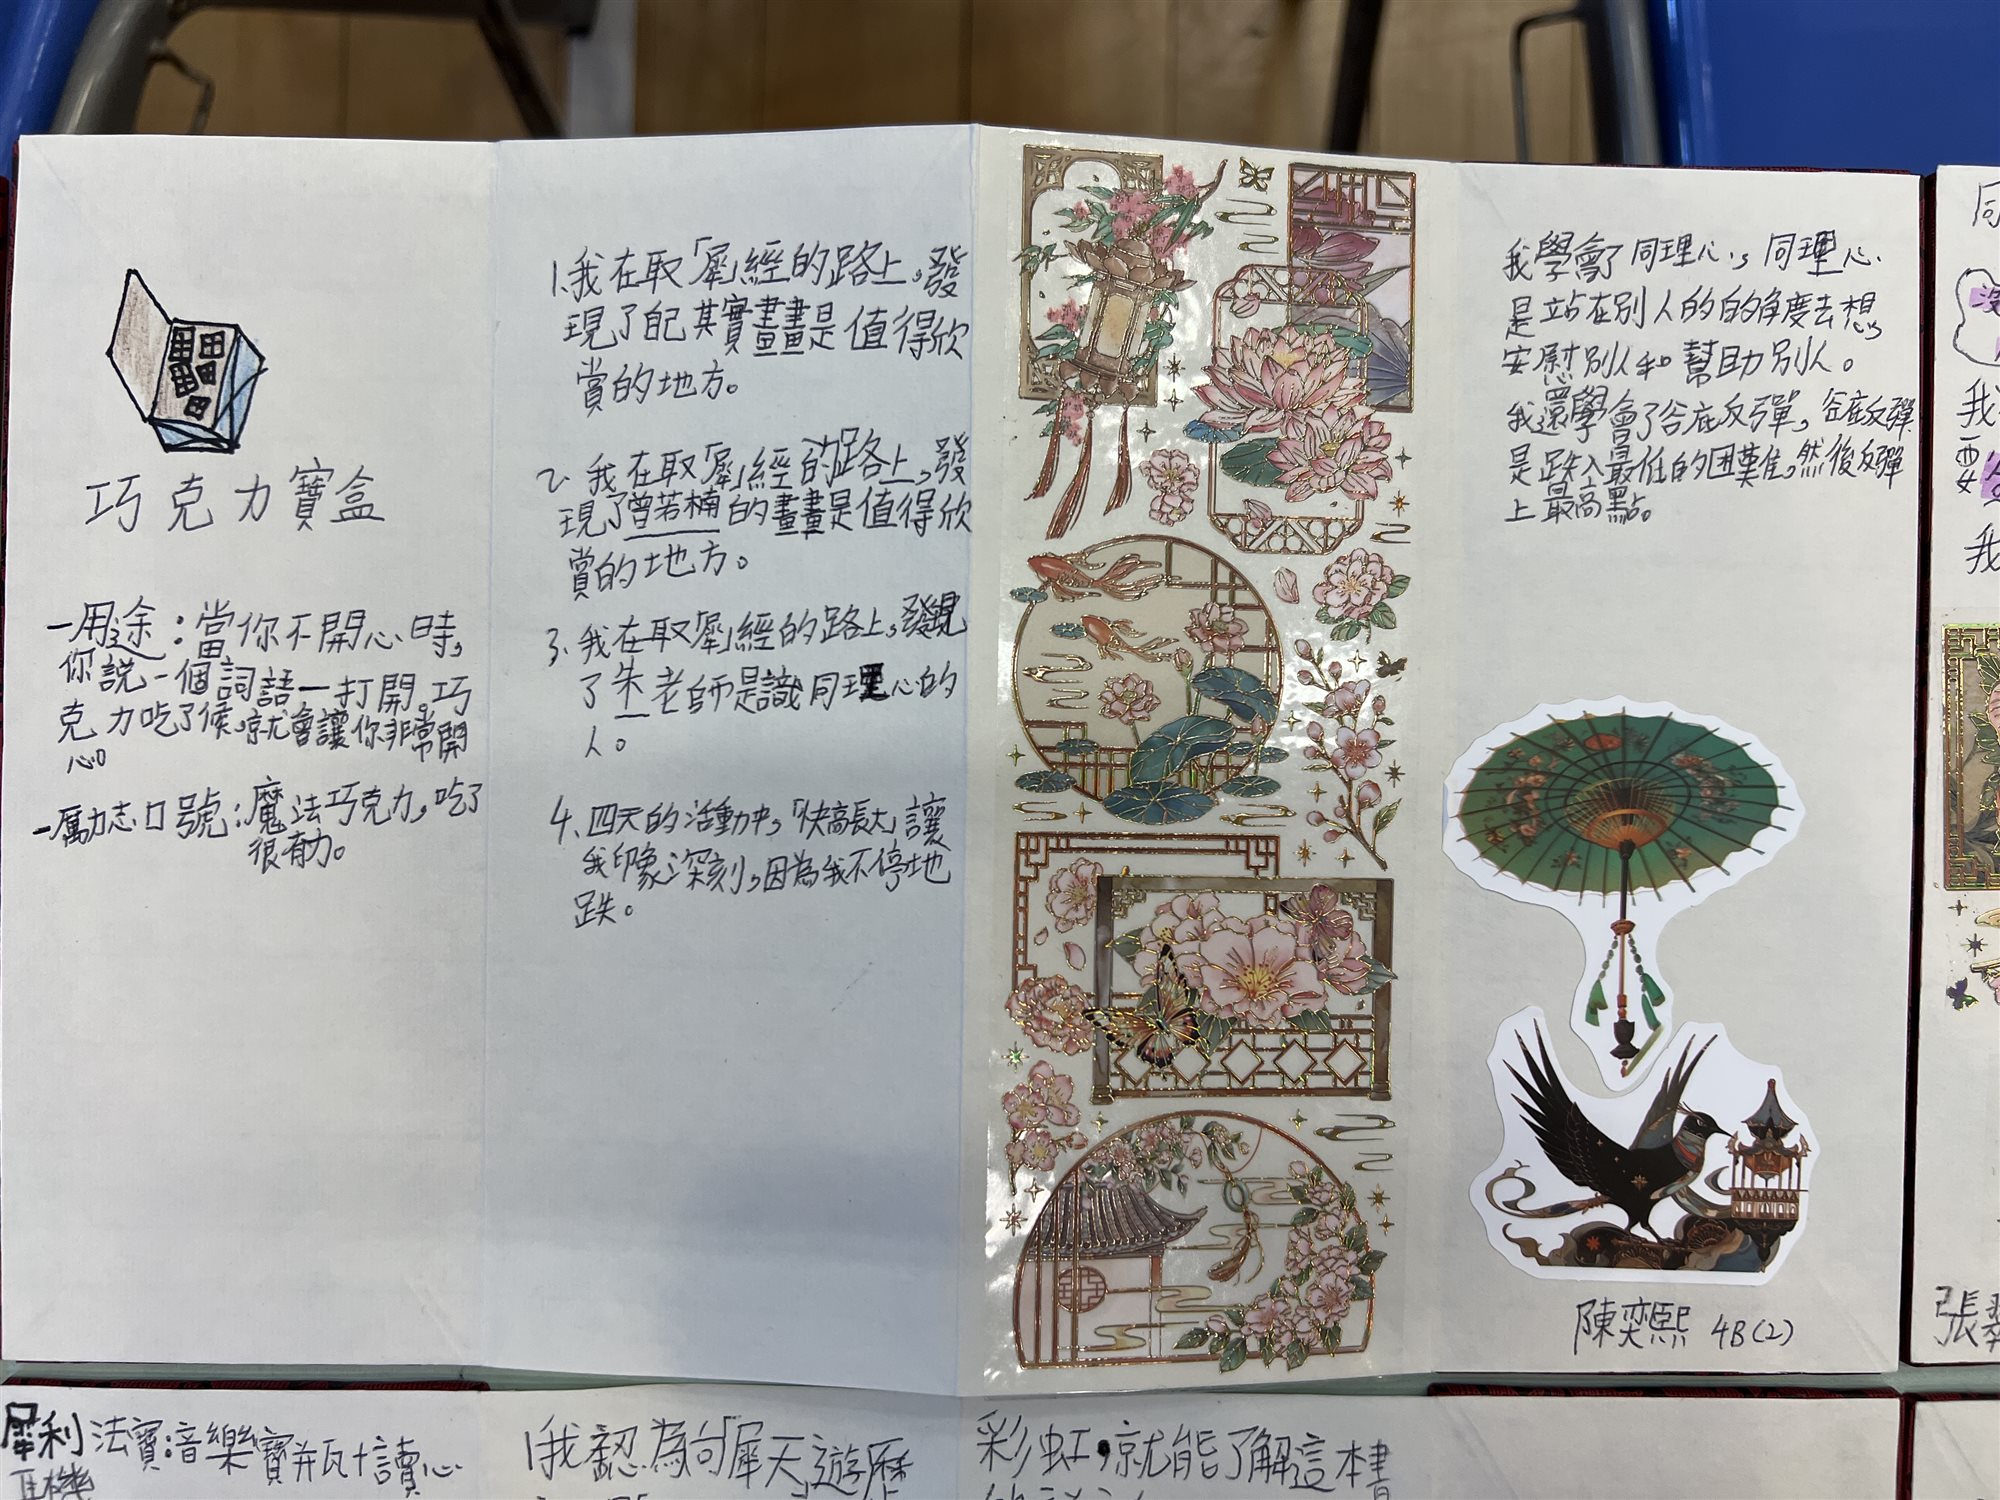 巧克力寶盒
一用途：當你不開心時，
你說一個詞語一打開。巧
克力吃了候，就會讓你非常開
心。
一勵志口號：魔法巧克力，吃了
很有力。
1.我在取「犀」經的路上，發
現了自己其實畫畫是值得欣
賞的地方。
2.我在取「犀」經的路上，發
現了曾若楠的畫畫是值得欣
賞的地方。
3.我在取「犀」經的路上，發現
了朱老師是識同理心的
人。
4.四天的活動中，「快高長大」讓
我印象深刻，因為我不停地
跌。
我學會了同理心，同理心
是站在別人的的角度去想，
安慰別人和幫助別人。
我還學會了谷底反彈，谷底反彈
是跌入最低的困難，然後反彈
上最高點。
陳奕熙 4B(2)
同
我
要
我
張
犀利法寶：音樂寶瓶+讀心
耳機
1我認為「犀天」遊歷
彩虹，就能了解這本書